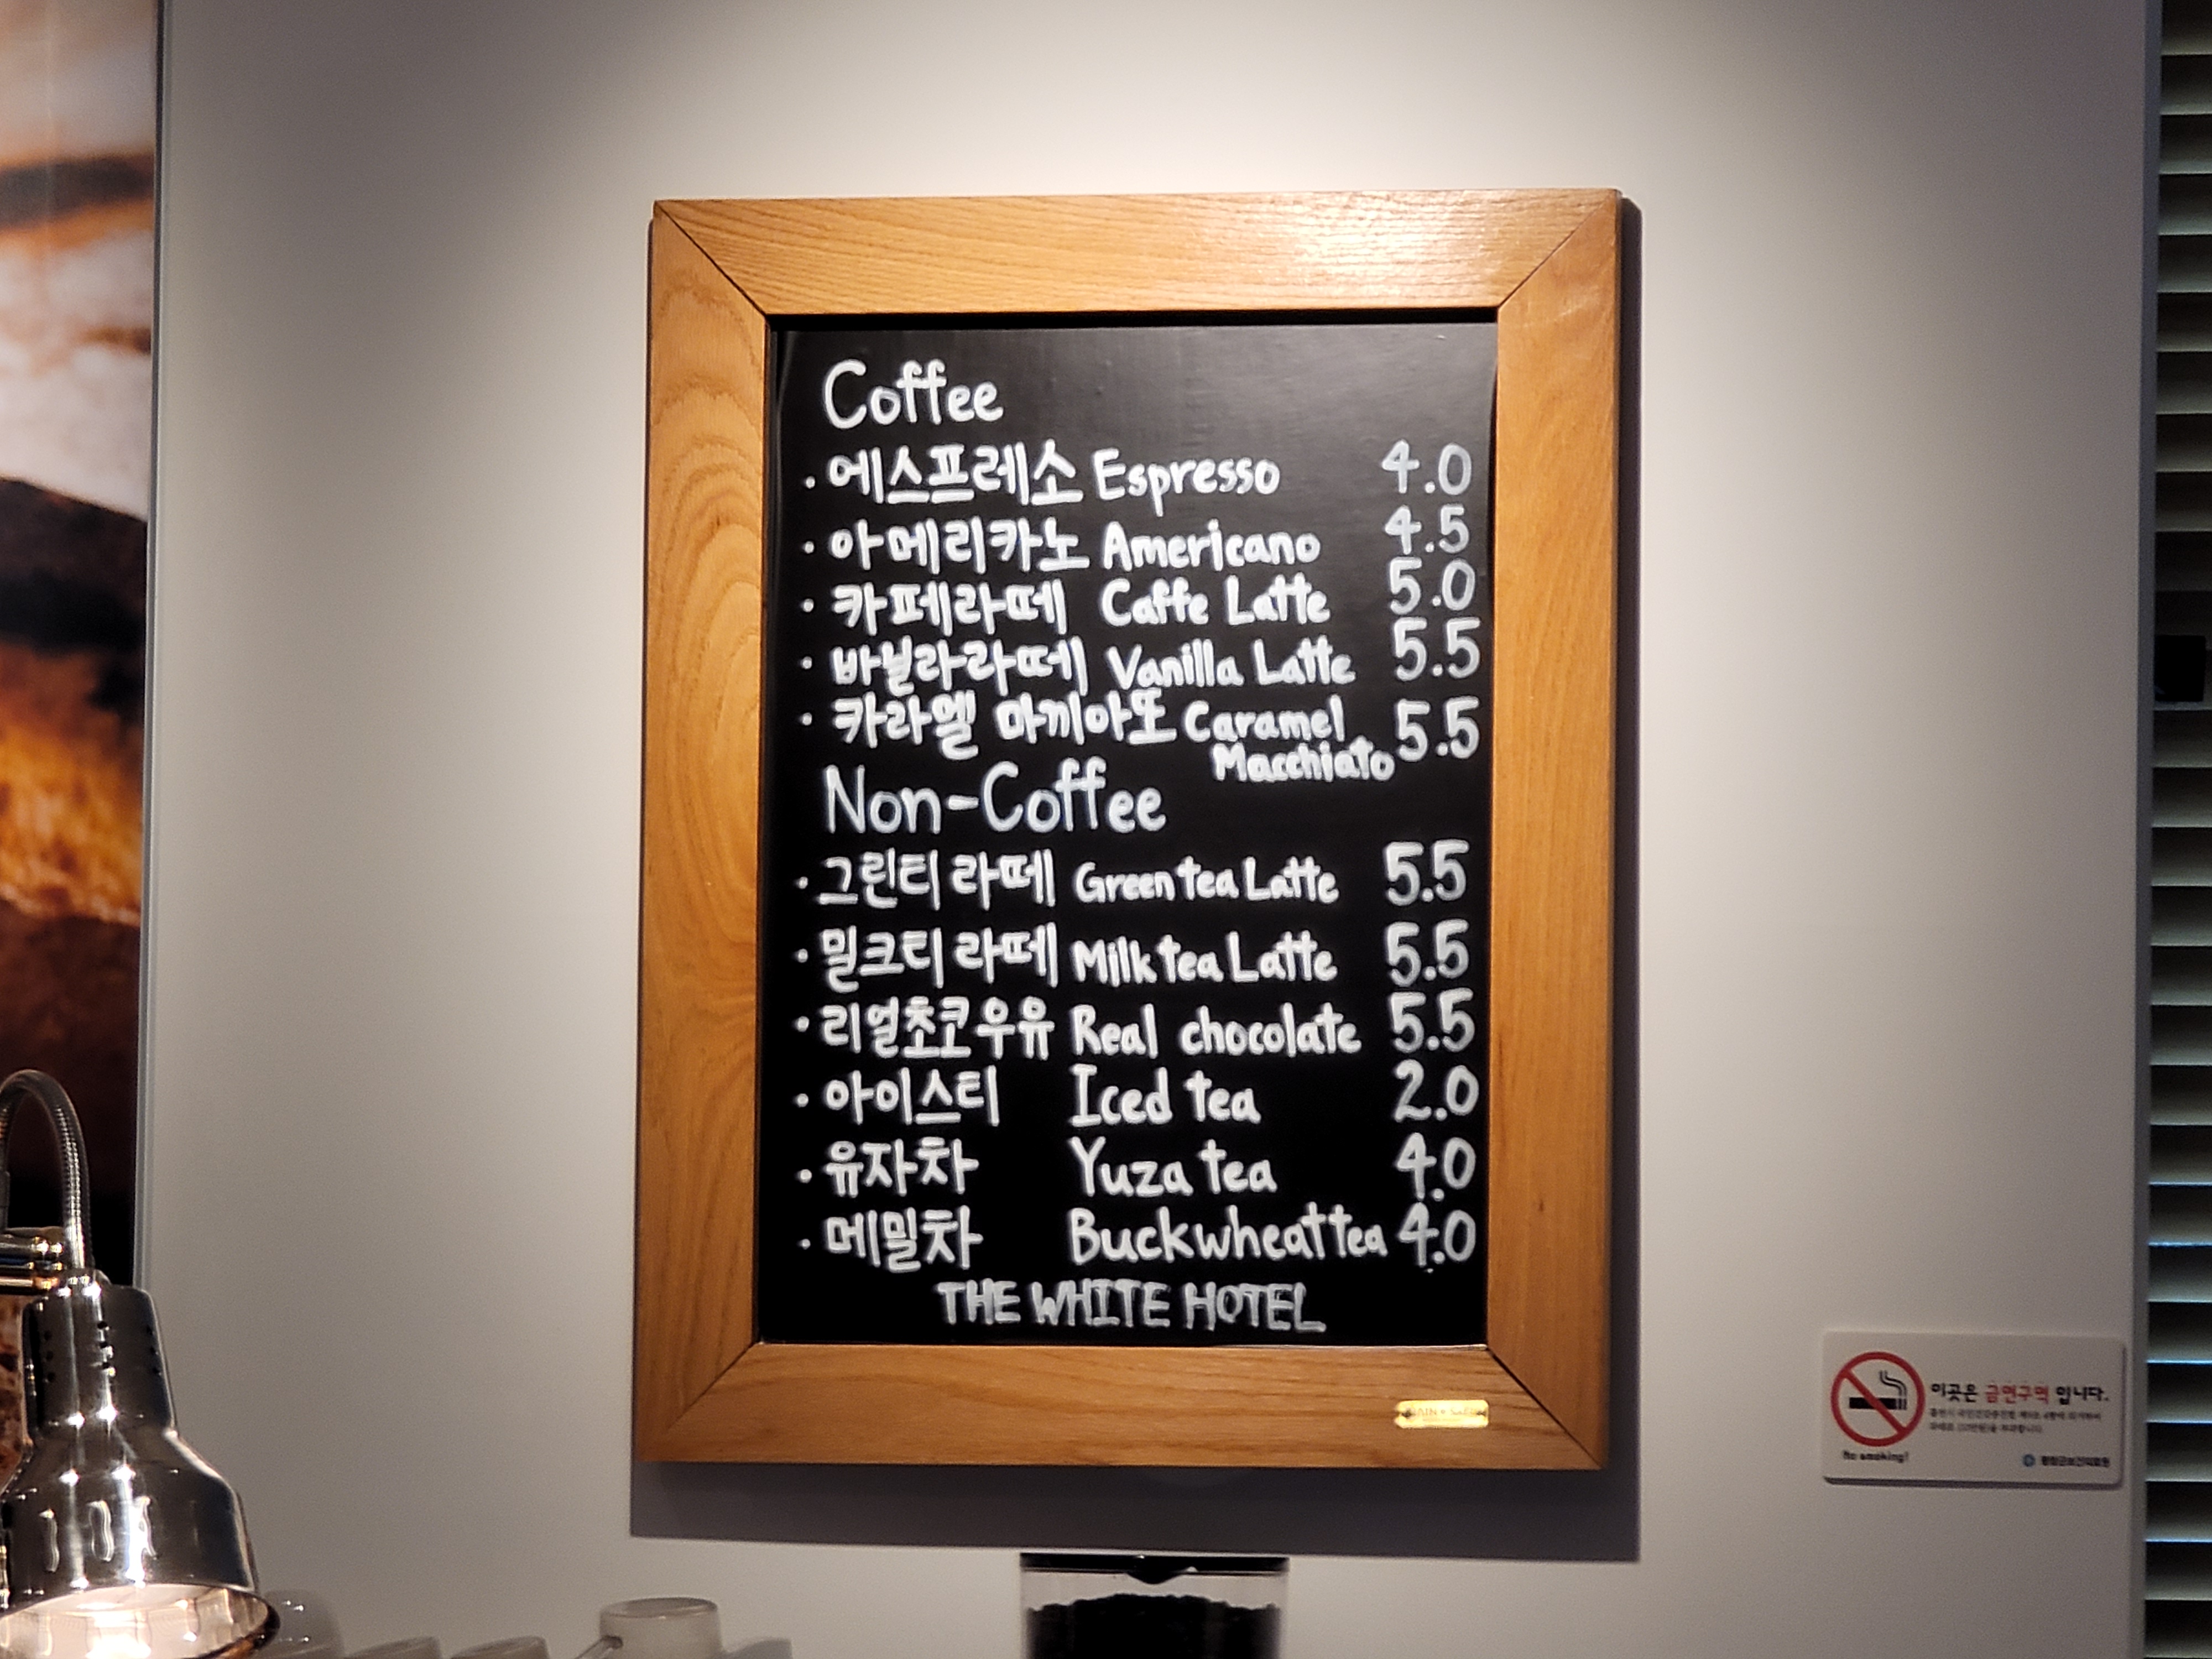 Coffee
· 에스프레소 Espresso 4.0
· 아메리카노 Americano 4.5
· 카페라떼 Caffe Latte 5.0
· 바닐라라떼 Vanilla Latte 5.5
· 카라멜 마끼아또 Caramel Macchiato 5.5
Non-Coffee
· 그린티 라떼 Green tea Latte 5.5
· 밀크티 라떼 Milk tea Latte 5.5
· 리얼초코우유 Real chocolate 5.5
· 아이스티 Iced tea 2.0
· 유자차 Yuza tea 4.0
· 메밀차 Buckwheat tea 4.0
THE WHITE HOTEL
이곳은 금연구역 입니다.
No smoking!